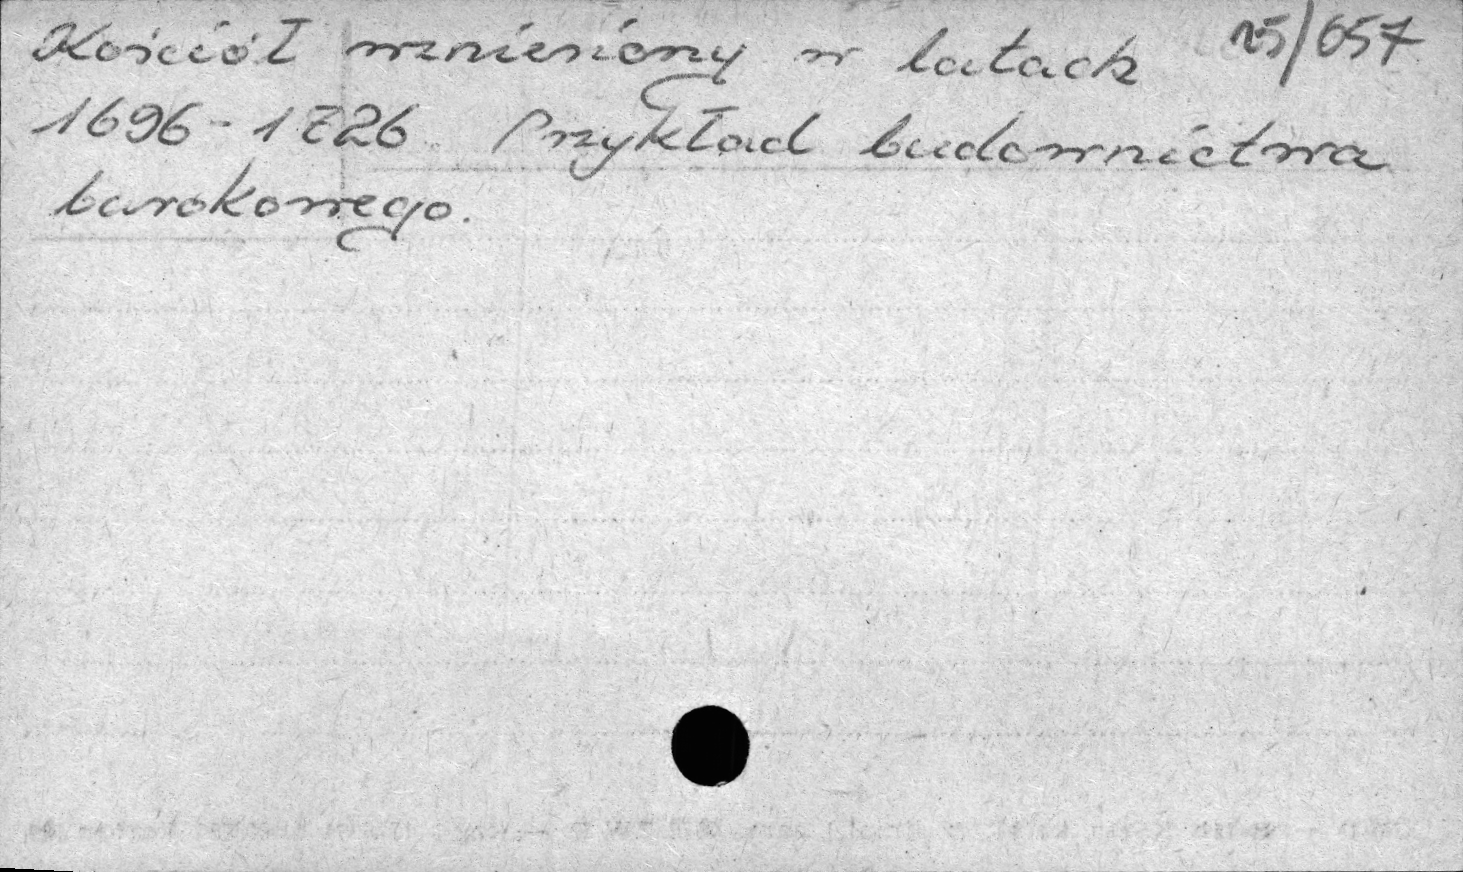 Kościół wzniesiony w latach 25/657
1696-1726. Przykład budownictwa
barokowego.